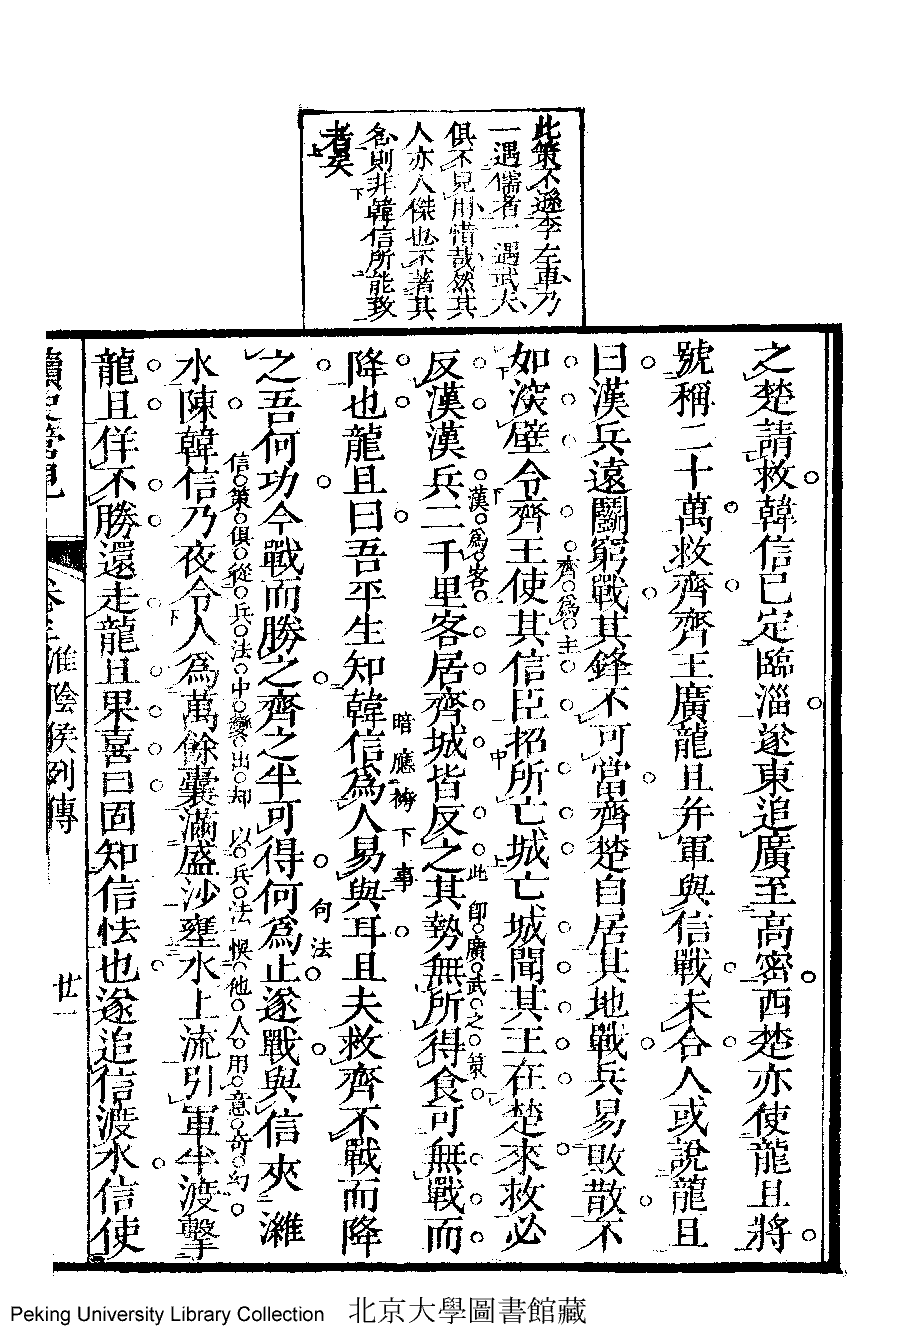 此策不遜李左車乃
一遇儒者一遇武夫
俱不見用惜哉然其
人亦人傑也不著其
名則非韓信所能致
者矣
之楚請救韓信已定臨淄遂東追廣至高密西楚亦使龍且將
號稱二十萬救齊齊王廣龍且并軍與信戰未合人或說龍且
曰漢兵遠鬭窮戰其鋒不可當齊楚自居其地戰兵易敗散不
齊爲主
如深壁令齊王使其信臣招所亡城亡城聞其王在楚來救必
漢爲客
此即廣武之策
反漢漢兵二千里客居齊城皆反之其勢無所得食可無戰而
暗應袴下事
降也龍且曰吾平生知韓信爲人易與耳且夫救齊不戰而降
句法
之吾何功今戰而勝之齊之半可得何爲止遂戰與信夾濰
信策俱從兵法中變出却以兵法悞他人用意奇幻
水陳韓信乃夜令人爲萬餘囊滿盛沙壅水上流引軍半渡擊
龍且佯不勝還走龍且果喜曰固知信怯也遂追信渡水信使
讀史管見
卷三 淮陰侯列傳
廿一
Peking University Library Collection 北京大學圖書館藏